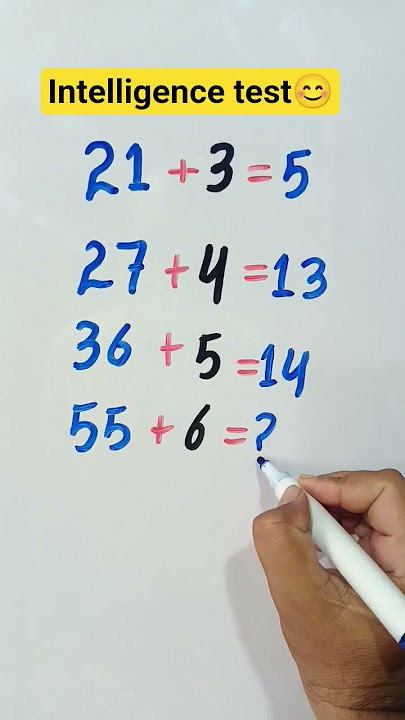 Intelligence test😊
21 + 3 = 5
27 + 4 = 13
36 + 5 = 14
55 + 6 = ?